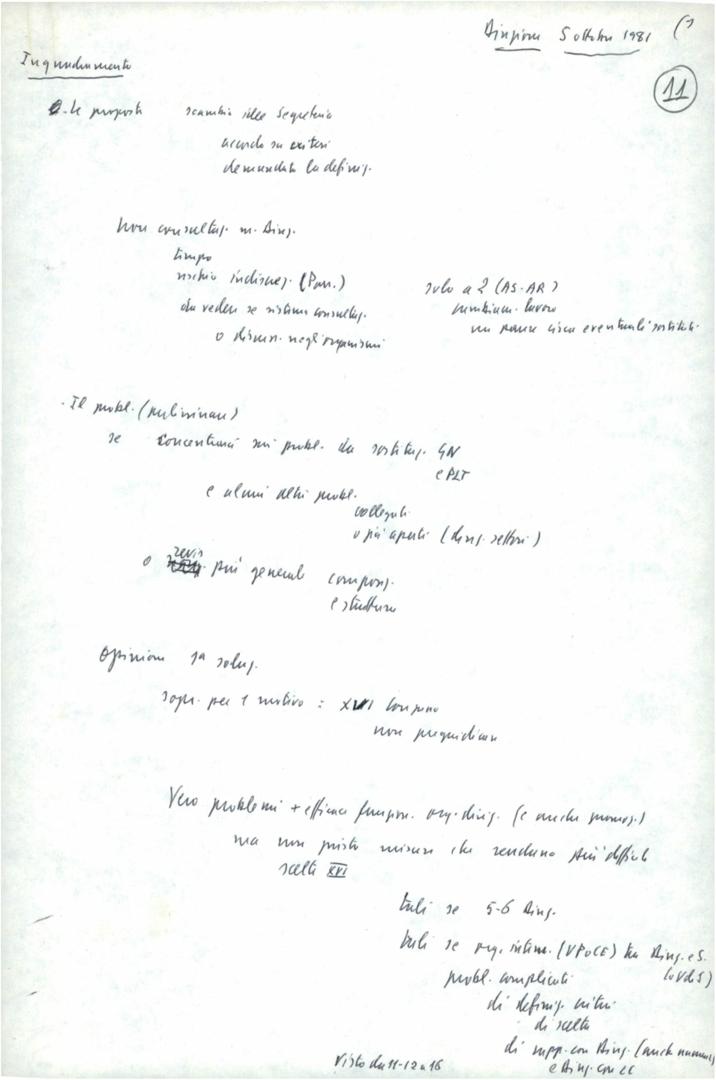 Direzione 5 ottobre 1981 (1
Inquadramento
11
- Le proposte scambio idee Segreteria
accordo su criteri
demandata la definiz.
Non consultaz. m. Direz.
tempo
rischio indiscrez. (Pan.) solo a 2 (AS-AR)
da vedere se sistema consultaz. cambiam. lavoro
o discuss. negli organismi eventuali sostituti
- Il probl. (preliminare)
se concentrarci sui probl. da sostituz. GN
e PLT
e alcuni altri probl.
collegati
o più aperti (direz. settori)
o revis più generale composiz.
e strutture
Opinione 1a soluz.
sopr. per 1 motivo: XVI Congresso
non pregiudicare
Vero problemi + efficace funzion. org. dirig. (e anche promoz.)
ma non misure che rendano più difficili
scelte XVI
tali se 5-6 Direz.
tali se org. interm. (VP o CE) tra Direz. e S.
probl. complicati (o VdS)
di definiz. criteri
di scelta
di rapp. con Direz. (anche numero)
e Direz. con CC
Visto da 11-12 a 16